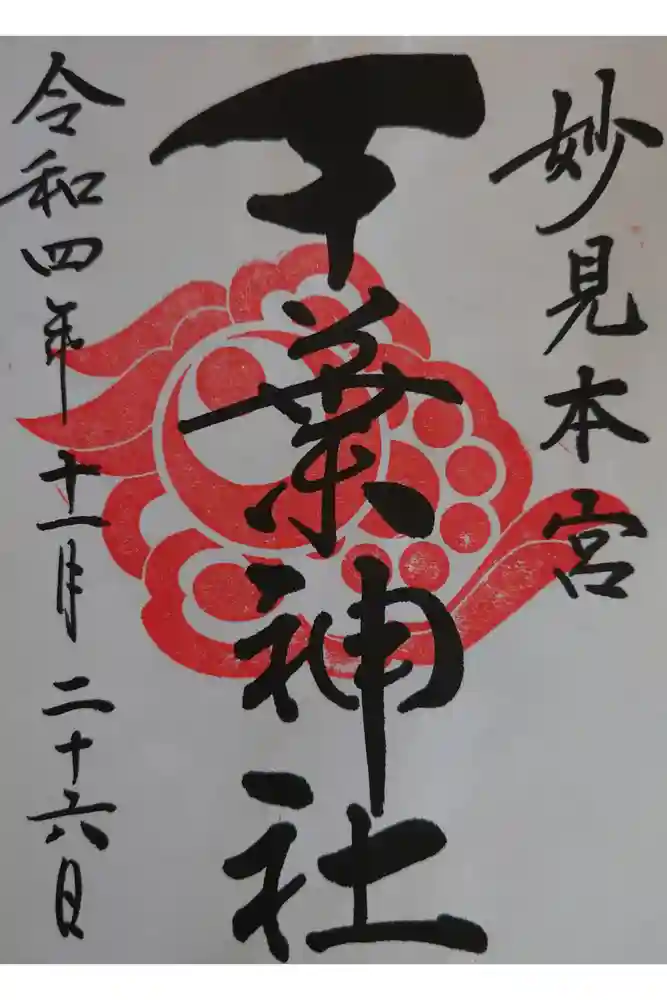 妙見本宮
千葉神社
令和四年十一月二十六日